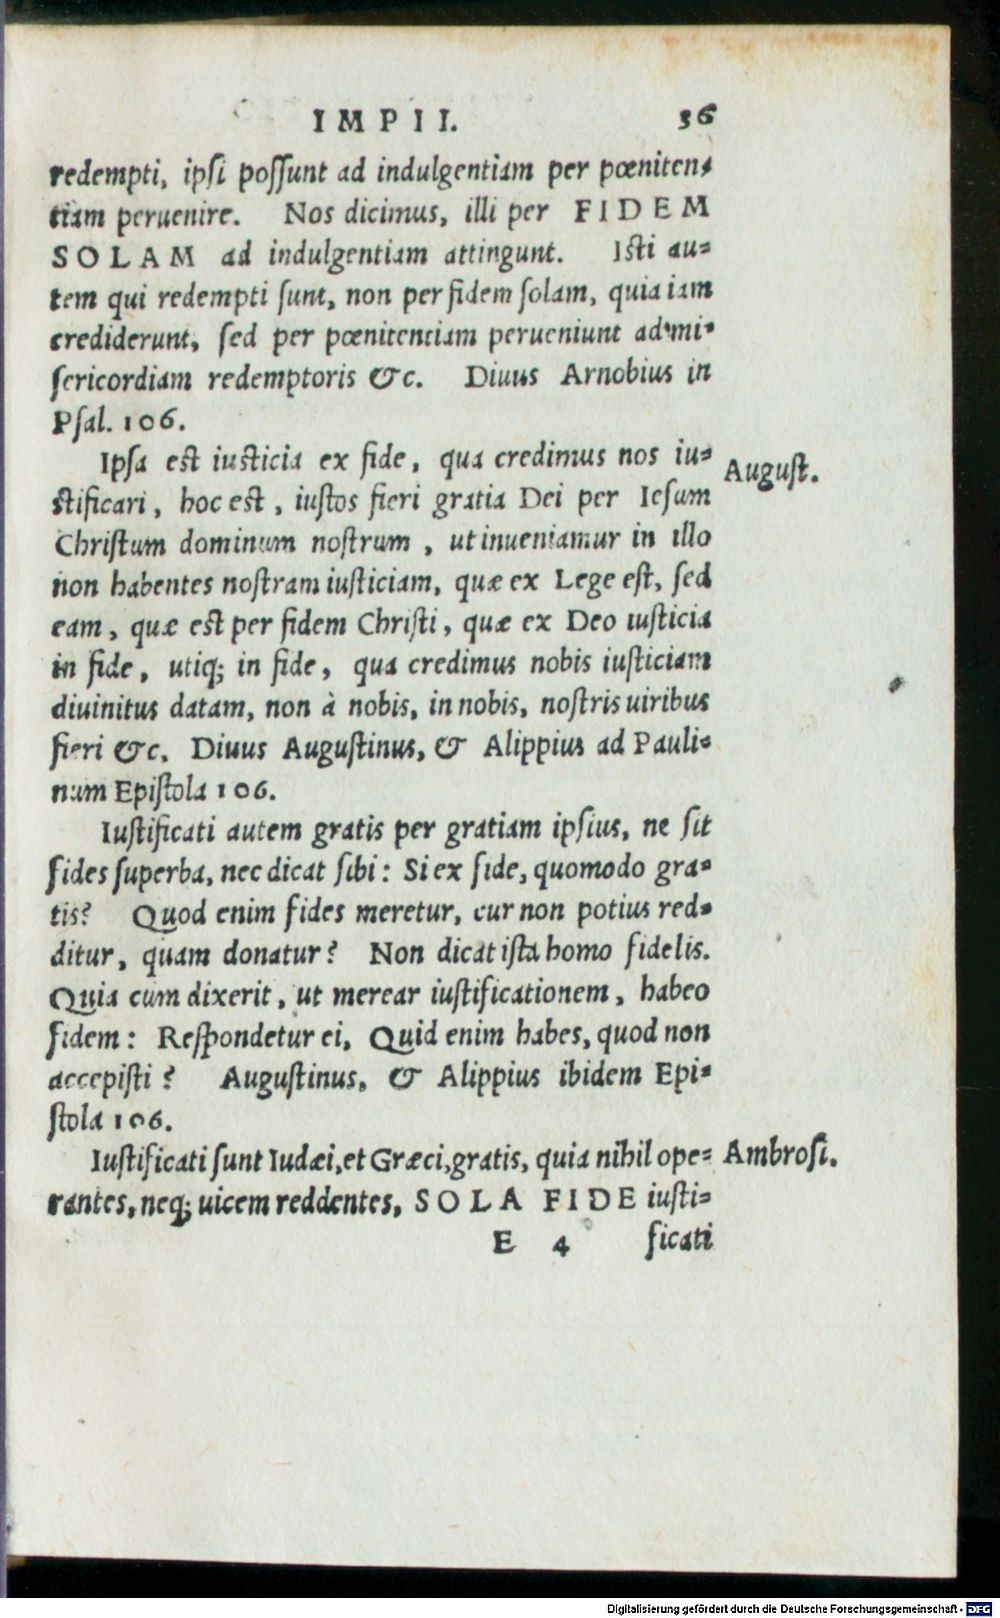 IMPII. 36
redempti, ipsi possunt ad indulgentiam per pœniten-
tiam peruenire. Nos dicimus, illi per FIDEM
SOLAM ad indulgentiam attingunt. Isti au-
tem qui redempti sunt, non per fidem solam, quia iam
crediderunt, sed per pœnitentiam perueniunt ad mi-
sericordiam redemptoris &c. Diuus Arnobius in
Psal. 106.
Ipsa est iusticia ex fide, qua credimus nos iu-
August.
stificari, hoc est, iustos fieri gratia Dei per Iesum
Christum dominum nostrum, ut inueniamur in illo
non habentes nostram iusticiam, quæ ex Lege est, sed
eam, quæ est per fidem Christi, quæ ex Deo iusticia
in fide, utiq; in fide, qua credimus nobis iusticiam
diuinitus datam, non à nobis, in nobis, nostris uiribus
fieri &c. Diuus Augustinus, & Alippius ad Pauli-
num Epistola 106.
Iustificati autem gratis per gratiam ipsius, ne sit
fides superba, nec dicat sibi: Si ex fide, quomodo gra-
tis? Quod enim fides meretur, cur non potius red-
ditur, quam donatur? Non dicat ista homo fidelis.
Quia cum dixerit, ut merear iustificationem, habeo
fidem: Respondetur ei, Quid enim habes, quod non
accepisti? Augustinus, & Alippius ibidem Epi-
stola 106.
Iustificati sunt Iudæi, et Græci, gratis, quia nihil ope-
Ambrosi.
rantes, neq; uicem reddentes, SOLA FIDE iusti-
E 4 ficati
Digitalisierung gefördert durch die Deutsche Forschungsgemeinschaft - DFG